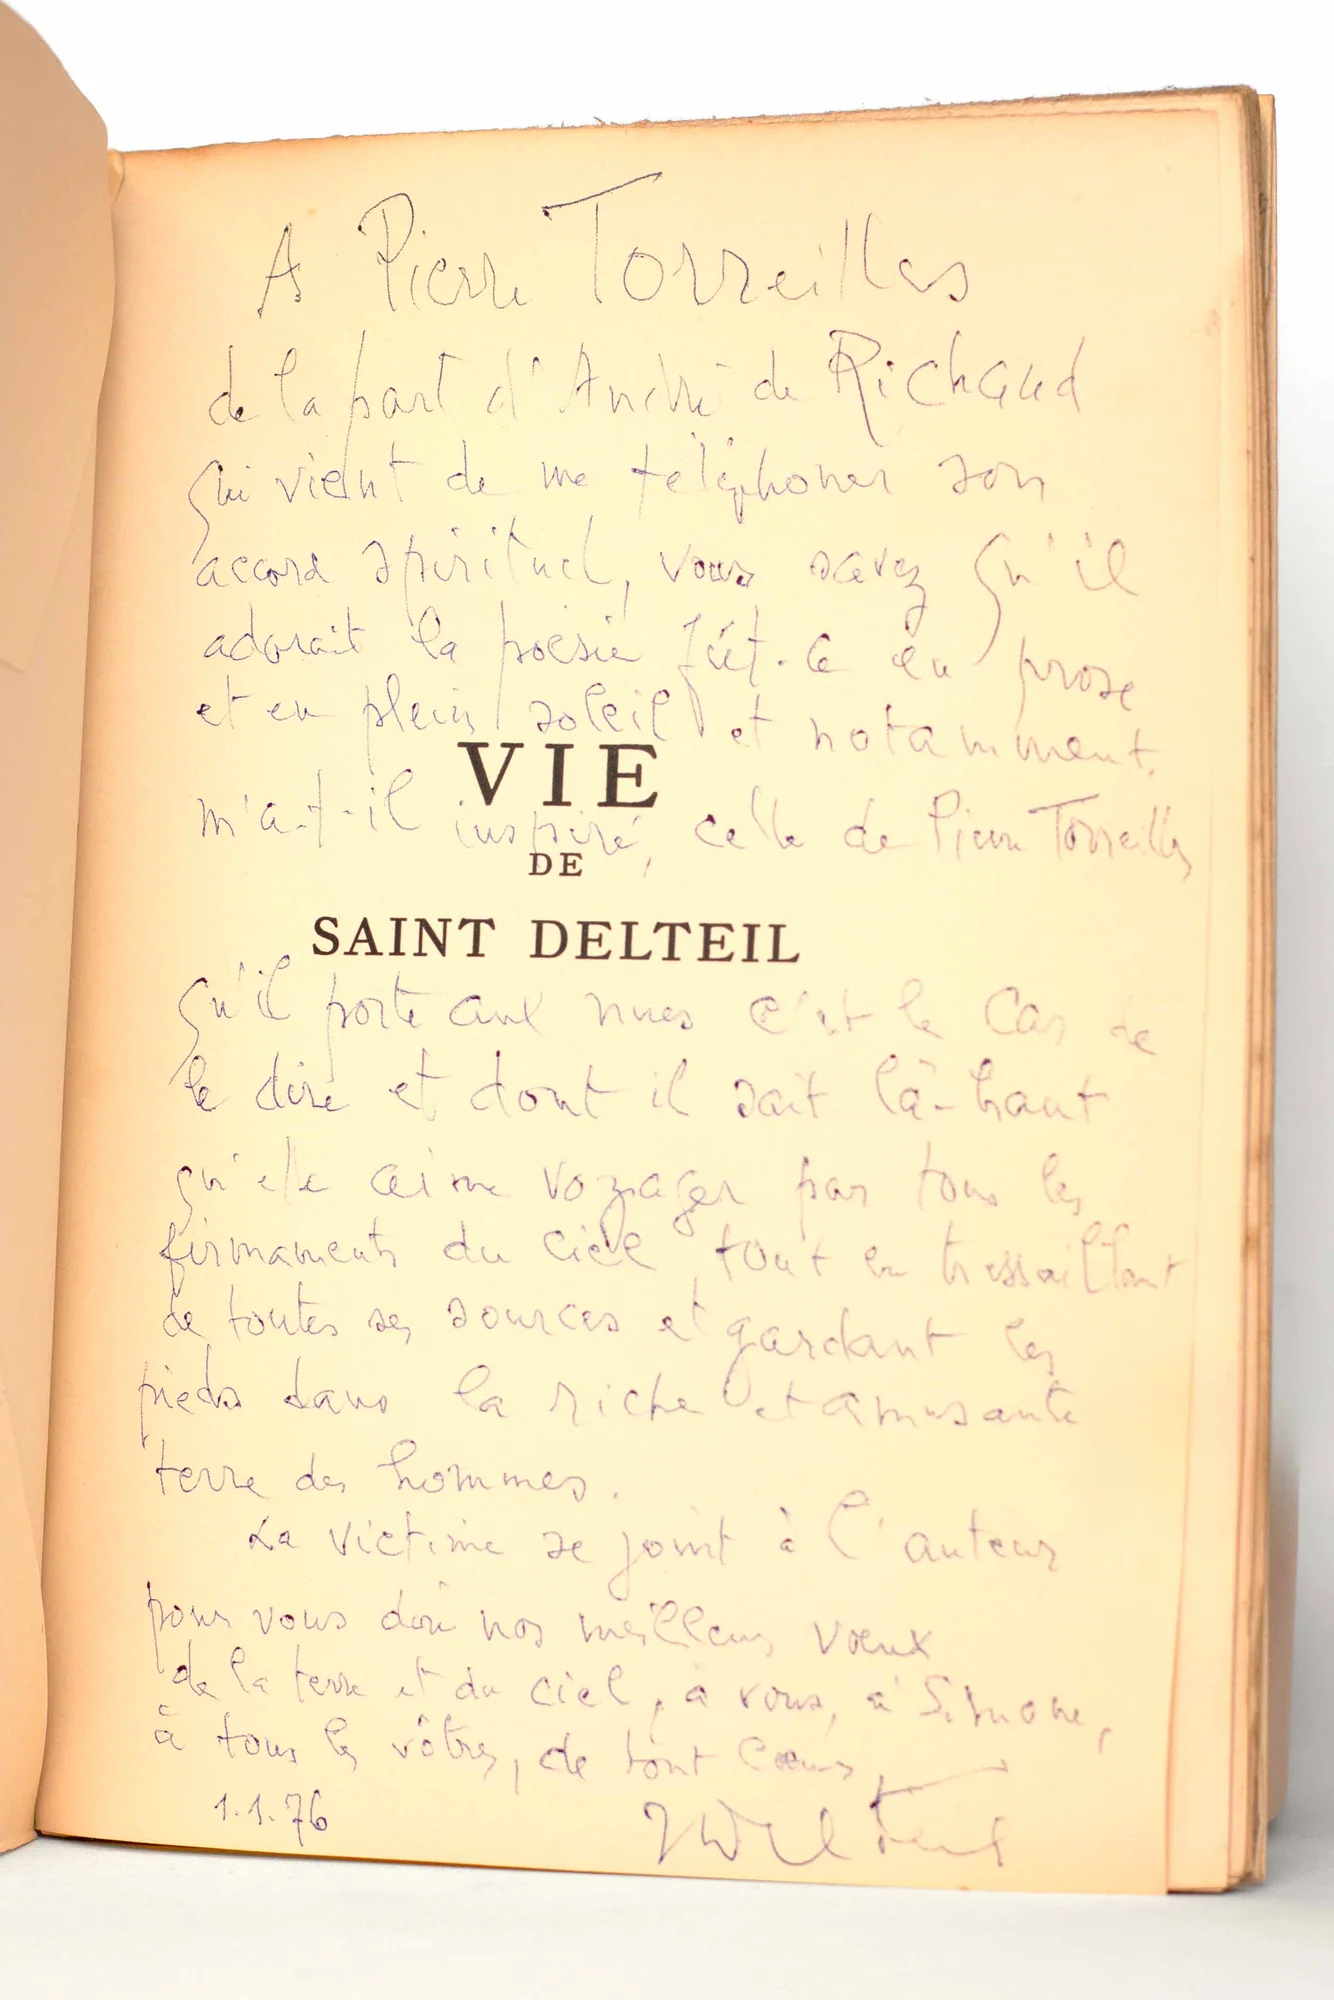 A Pierre Torreilles
de la part d'André de Richaud
qui vient de me téléphoner son
accord spirituel, vous savez qu'il
adorait la poésie fût-ce en prose
et en plein soleil et notamment,
m'a-t-il inspiré, celle de Pierre Torreilles
VIE
DE
SAINT DELTEIL
qu'il porte aux nues c'est le cas de
le dire et dont il sait là-haut
qu'elle aime voyager par tous les
firmaments du ciel tout en tressaillant
de toutes ses sources et gardant les
pieds dans la riche et amusante
terre des hommes.
La victime se joint à l'auteur
pour vous dire nos meilleurs vœux
de la terre et du ciel, à vous, à Simone,
à tous les vôtres, de tout cœur,
1.1.76
JDelteil